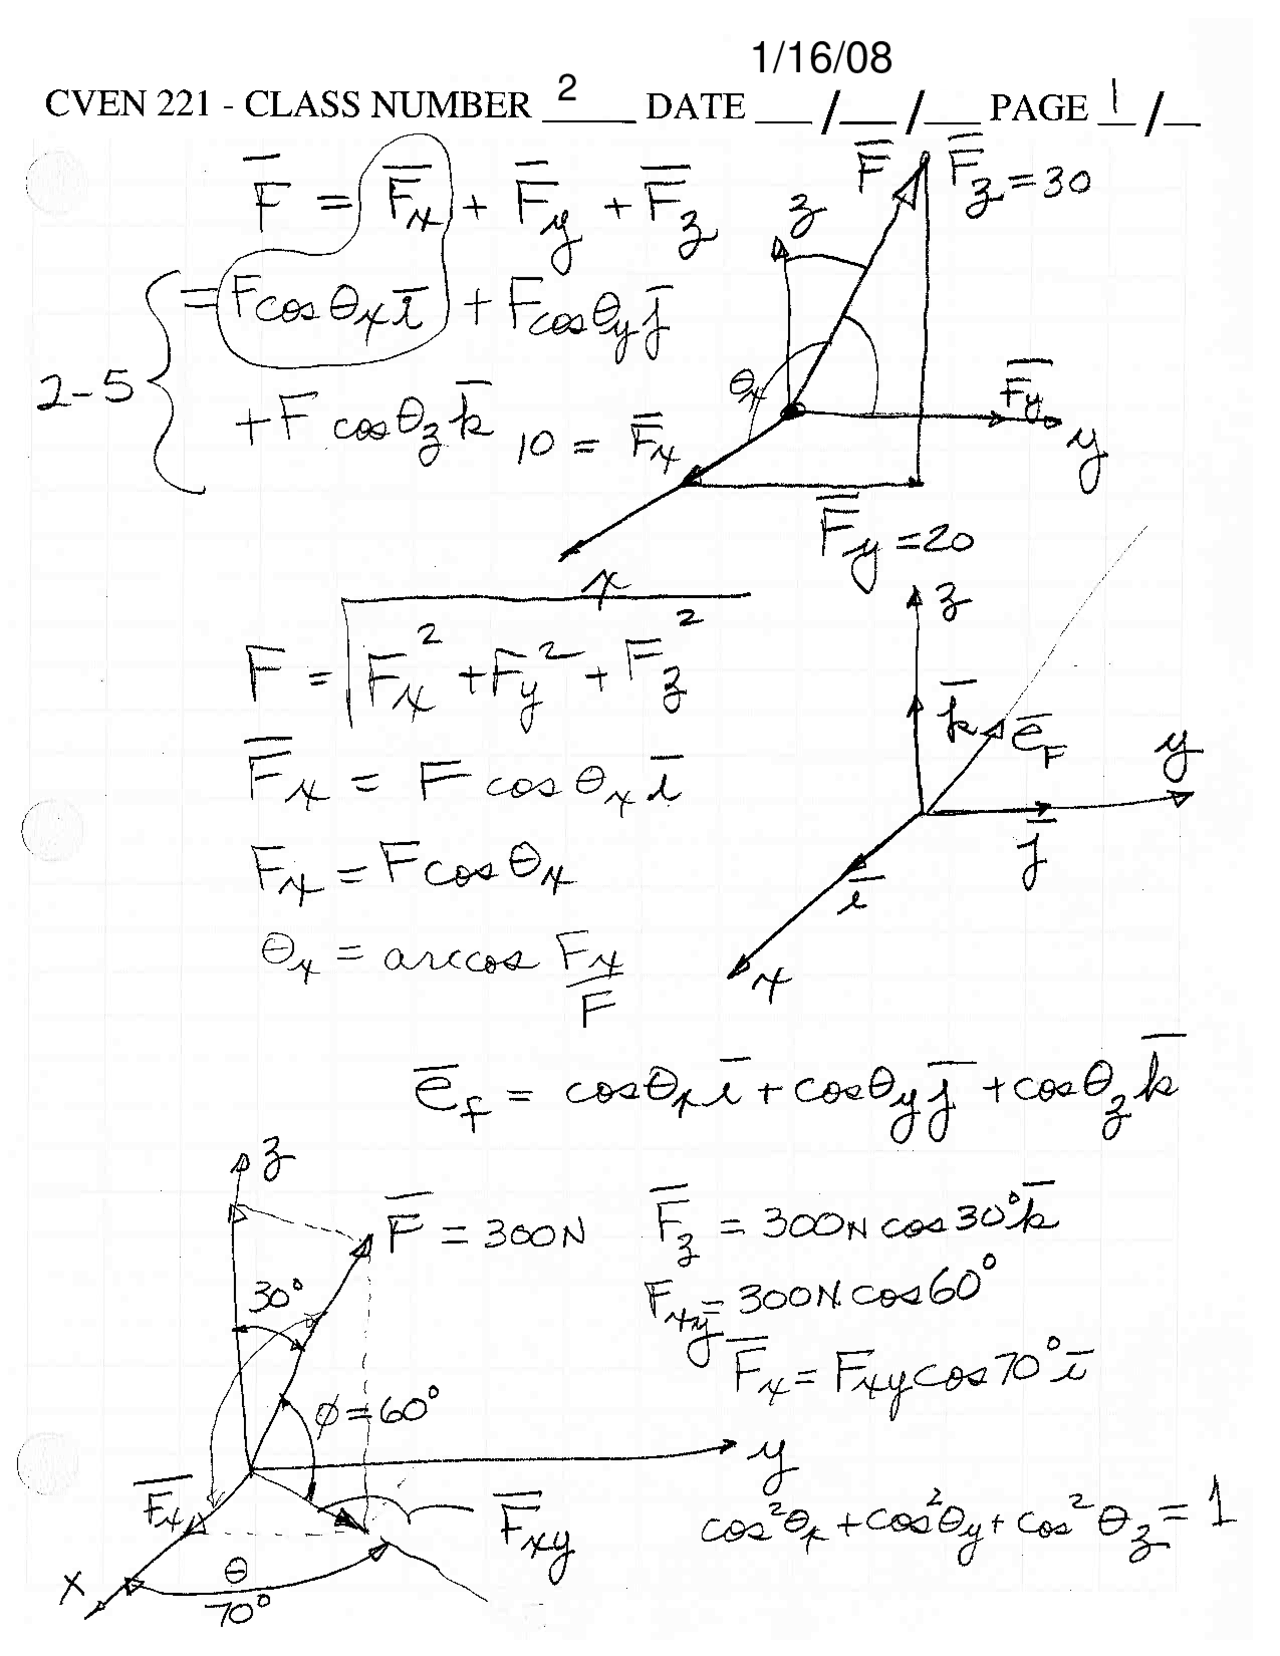 1/16/08
CVEN 221 - CLASS NUMBER 2 DATE __/__/__ PAGE 1/__
F̅ = F̅x + F̅y + F̅z
= F cos θx i̅ + F cos θy j̅
2-5
+ F cos θz k̅
F̅
F̅z = 30
z
θx
F̅y
y
10 = F̅x
F̅y = 20
x
F = √Fx² + Fy² + Fz²
z
k̅
e̅F
y
j̅
i̅
x
F̅x = F cos θx i̅
Fx = F cos θx
θx = arccos Fx/F
e̅f = cosθx i̅ + cosθy j̅ + cosθz k̅
z
F̅ = 300N
30°
φ = 60°
y
F̅x
F̅xy
x
θ
70°
F̅z = 300N cos 30° k̅
Fxy = 300N cos 60°
F̅x = Fxy cos 70° i̅
cos²θx + cos²θy + cos²θz = 1